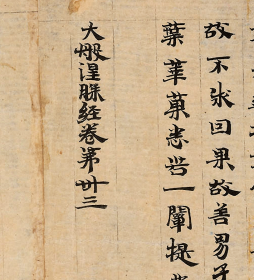 故不求因果故善男子
葉華菓悉皆一闡提
大般涅槃経卷第卅三